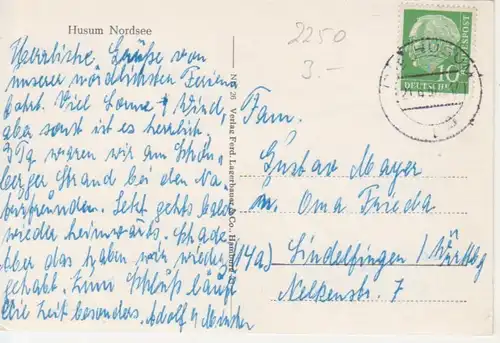 Husum Nordsee
2250
3.-
Herzliche Grüße von
unserer nördlichsten Ferien
fahrt. Viel Sonne & Wind,
aber sonst ist es herrlich.
3 Tg waren wir am Schön-
berger Strand bei den Na-
turfreunden. Jetzt gehts bald
wieder heimwärts. Schade
aber das haben wir wieder
gehabt. Zum Schluß läuft
die Zeit besonders. Adolf &
Nr. 26 Verlag Ferd. Lagerbauer & Co., Hamburg
10
DEUTSCHE BUNDESPOST
HUSUM
Fam.
Gustav Mayer
u. Oma Frieda
(14a) Sindelfingen / Württbg
Nelkenstr. 7